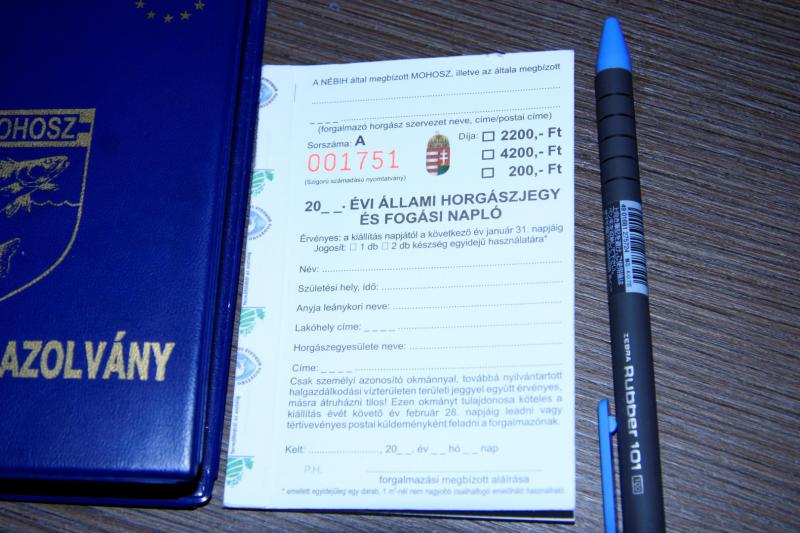 MOHOSZ
AZOLVÁNY
A NÉBIH által megbízott MOHOSZ, illetve az általa megbízott
(forgalmazó horgász szervezet neve, címe/postai címe)
Sorszáma: A
001751
(Szigorú számadású nyomtatvány)
Díja: □ 2200,- Ft
□ 4200,- Ft
□ 200,- Ft
20_ _. ÉVI ÁLLAMI HORGÁSZJEGY
ÉS FOGÁSI NAPLÓ
Érvényes: a kiállítás napjától a következő év január 31. napjáig
Jogosít: □ 1 db □ 2 db készség egyidejű használatára*
Név:
Születési hely, idő:
Anyja leánykori neve:
Lakóhely címe: _ _ _ _
Horgászegyesülete neve:
Címe: _ _ _ _
Csak személyi azonosító okmánnyal, továbbá nyilvántartott
halgazdálkodási vízterületen területi jeggyel együtt érvényes,
másra átruházni tilos! Ezen okmányt tulajdonosa köteles a
kiállítás évét követő év február 28. napjáig leadni vagy
tértivevényes postai küldeményként feladni a forgalmazónak.
Kelt: ........................, 20_ _. év _ _ hó _ _ nap
P.H.
forgalmazási megbízott aláírása
* emellett egyidejűleg egy darab, 1 m²-nél nem nagyobb csalihalfogó emelőháló használható
ZEBRA Rubber 101